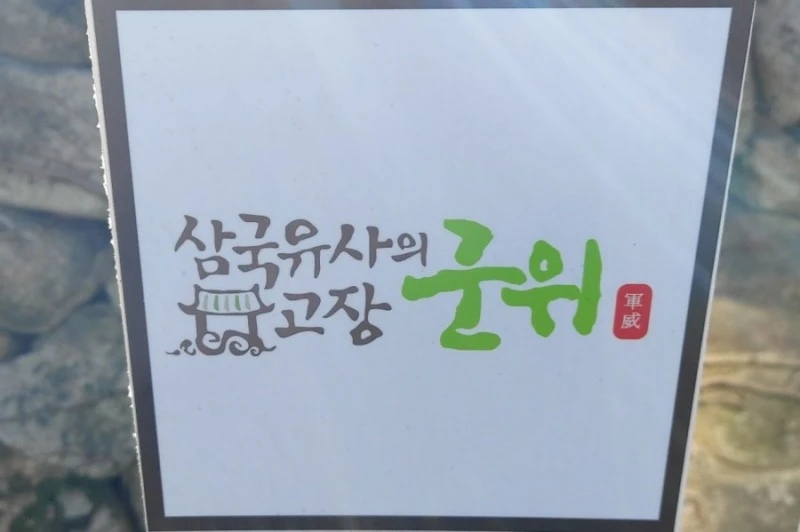 삼국유사의
고장 군위
軍威